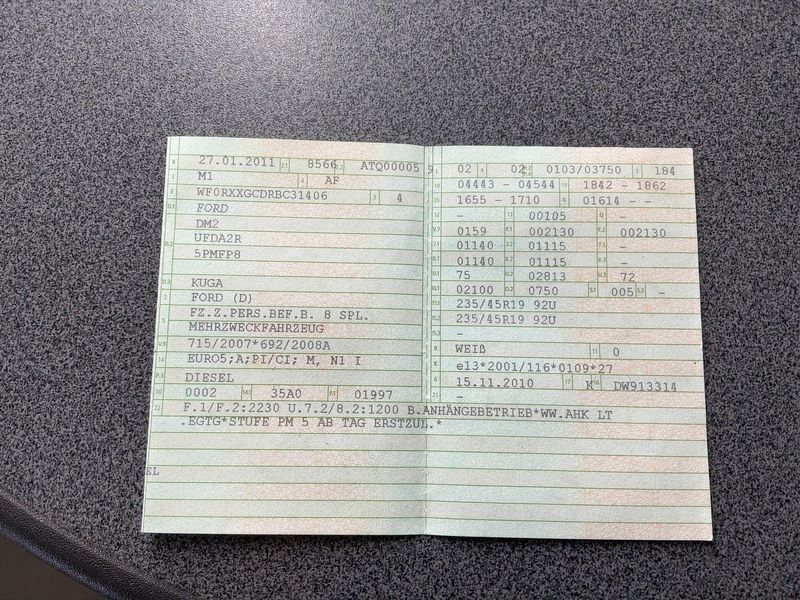 B 27.01.2011 2.1 8566 2.2 ATQ00005 9
J M1 4 AF
E WF0RXXGCDRBC31406 3 4
D.1 FORD
DM2
D.2 UFDA2R
5PMFP8
D.3 KUGA
2 FORD (D)
5 FZ.Z.PERS.BEF.B. 8 SPL.
MEHRZWECKFAHRZEUG
V.9 715/2007*692/2008A
14 EURO5;A;PI/CI; M, N1 I
P.3 DIESEL
10 0002 14.1 35A0 P.1 01997
L 02 9 02 P.2/P.4 0103/03750 T 184
18 04443 - 04544 19 1842 - 1862
20 1655 - 1710 G 01614 - -
12 - 13 00105 Q -
V.7 0159 F.1 002130 F.2 002130
7.1 01140 7.2 01115 7.3 -
8.1 01140 8.2 01115 8.3 -
U.1 75 U.2 02813 U.3 72
O.1 02100 O.2 0750 S.1 005 S.2 -
15.1 235/45R19 92U
15.2 235/45R19 92U
15.3 -
R WEIß 11 0
K e13*2001/116*0109*27
6 15.11.2010 17 K 16 DW913314
21 -
22 F.1/F.2:2230 U.7.2/8.2:1200 B.ANHÄNGEBETRIEB*WW.AHK LT
.EGTG*STUFE PM 5 AB TAG ERSTZUL.*
EL